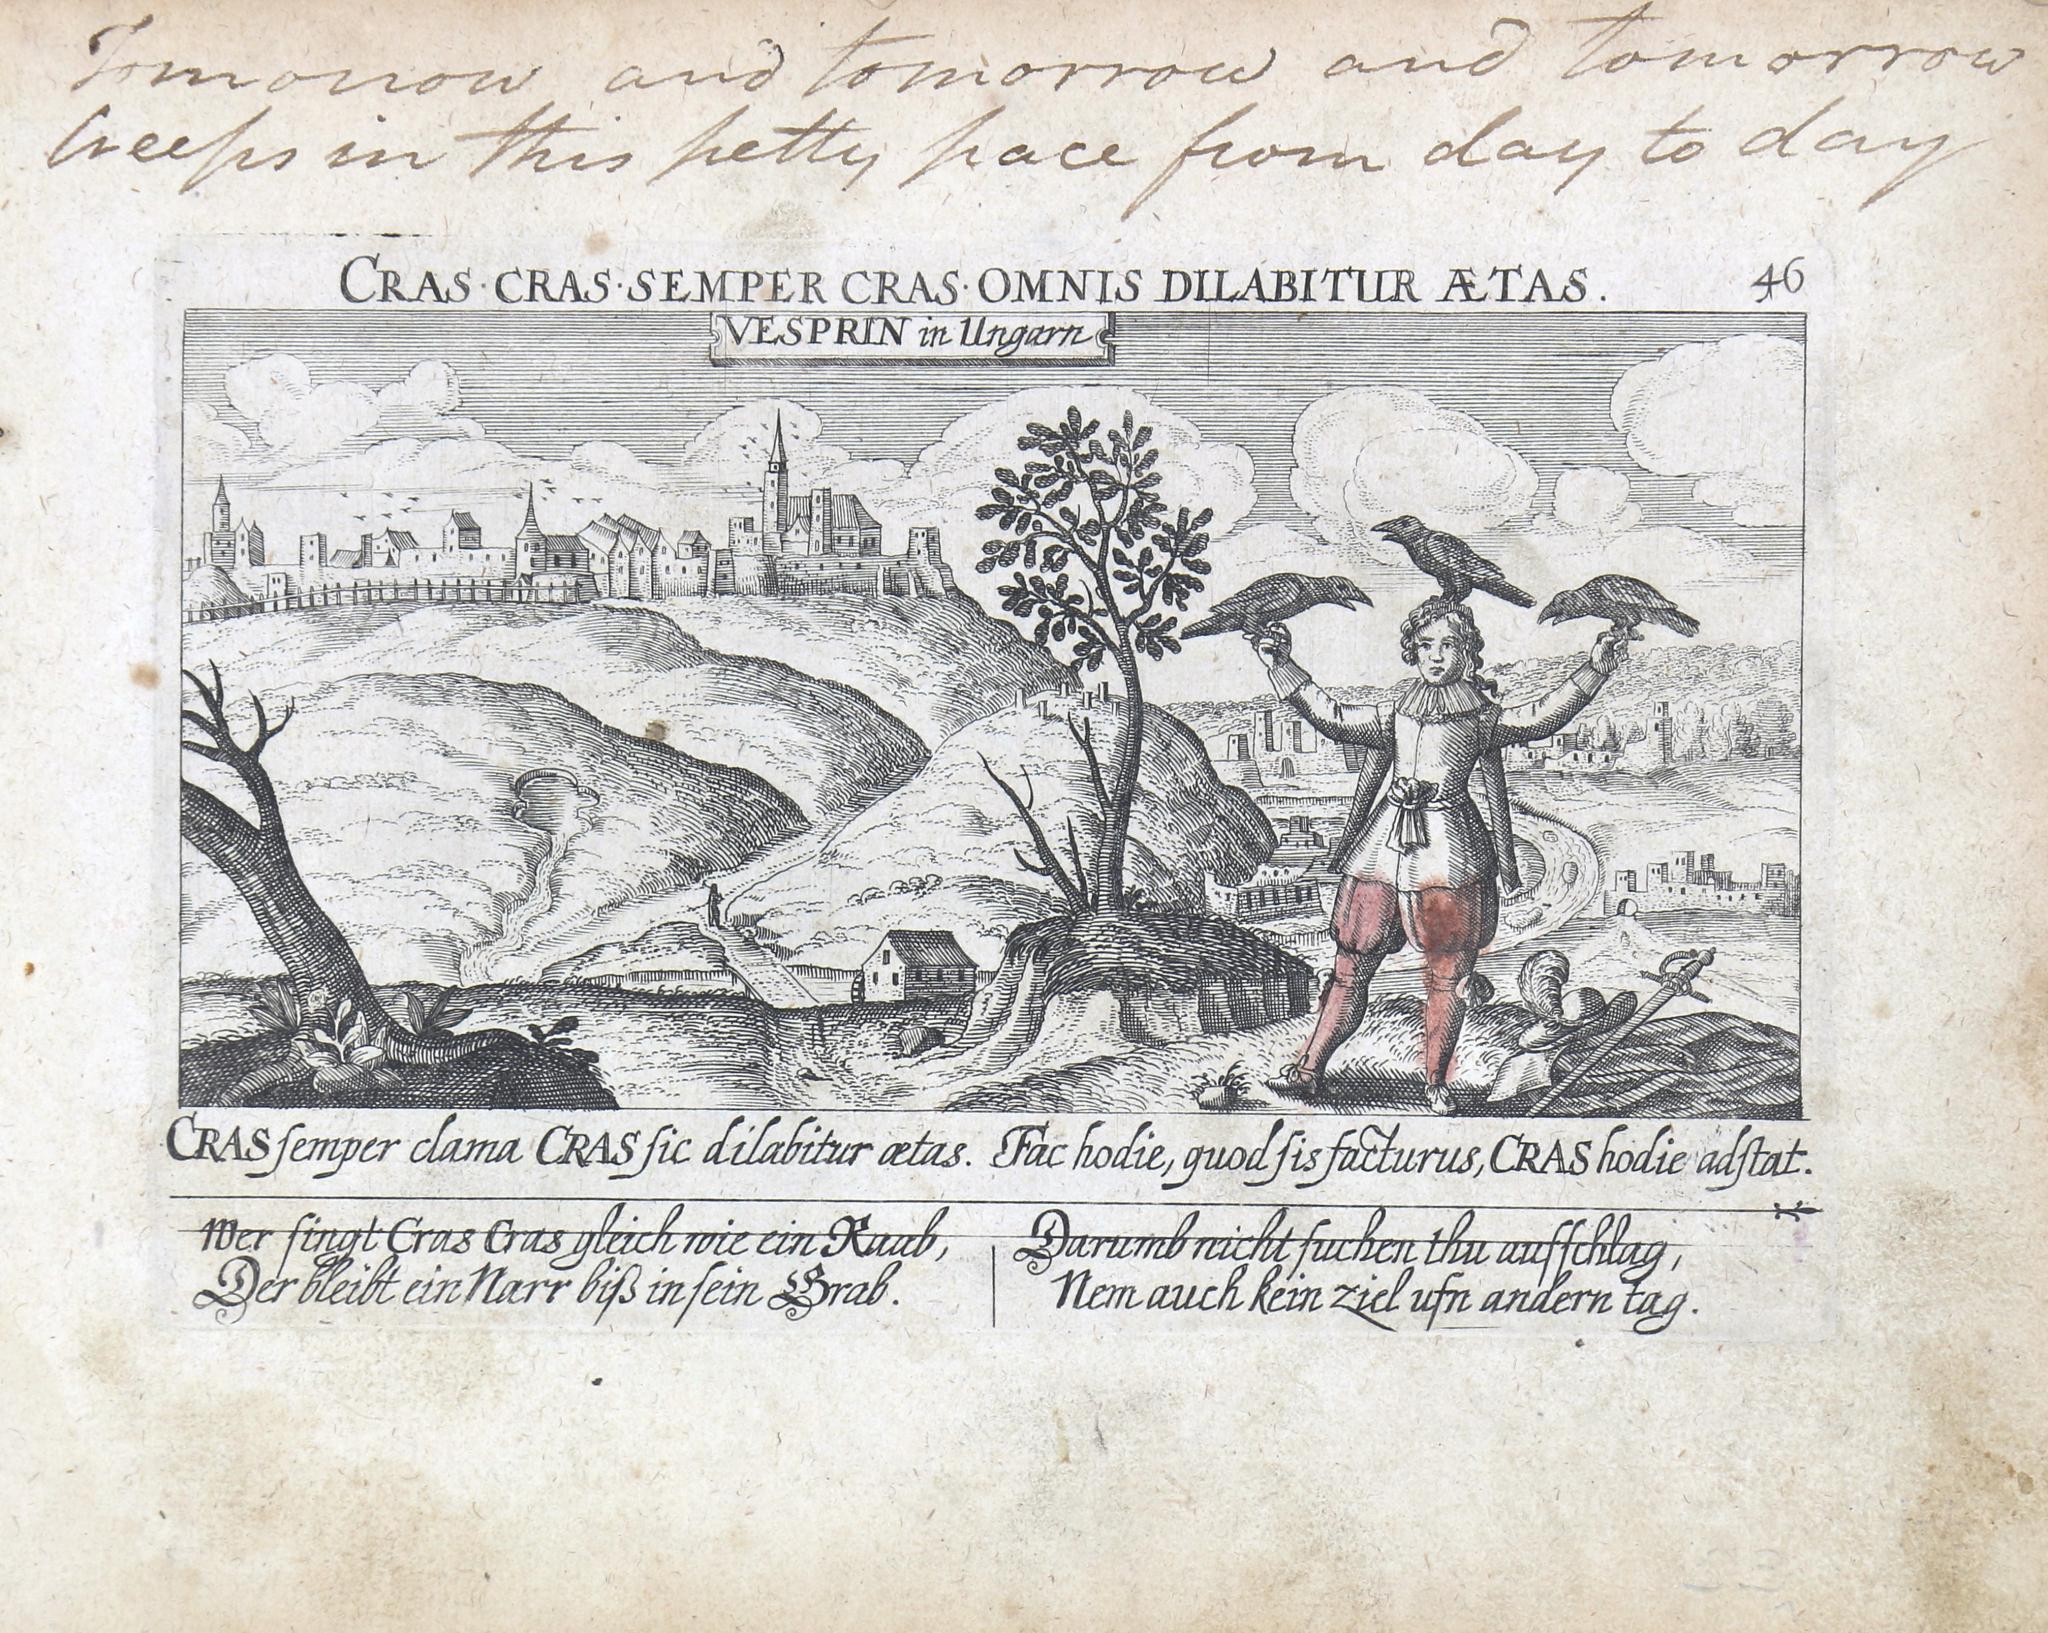 Tomorrow and tomorrow and tomorrow
Creeps in this petty pace from day to day
CRAS·CRAS·SEMPER CRAS·OMNIS DILABITUR ÆTAS.
46
VESPRIN in Ungarn
CRAS ſemper clama CRAS ſic dilabitur ætas. Fac hodie, quod ſis facturus, CRAS hodie adſtat.
Wer ſingt Cras Cras gleich wie ein Raab,
Der bleibt ein Narr biß in ſein Grab.
Darumb nicht ſuchen thu auffſchlag,
Nem auch kein ziel ufn andern tag.